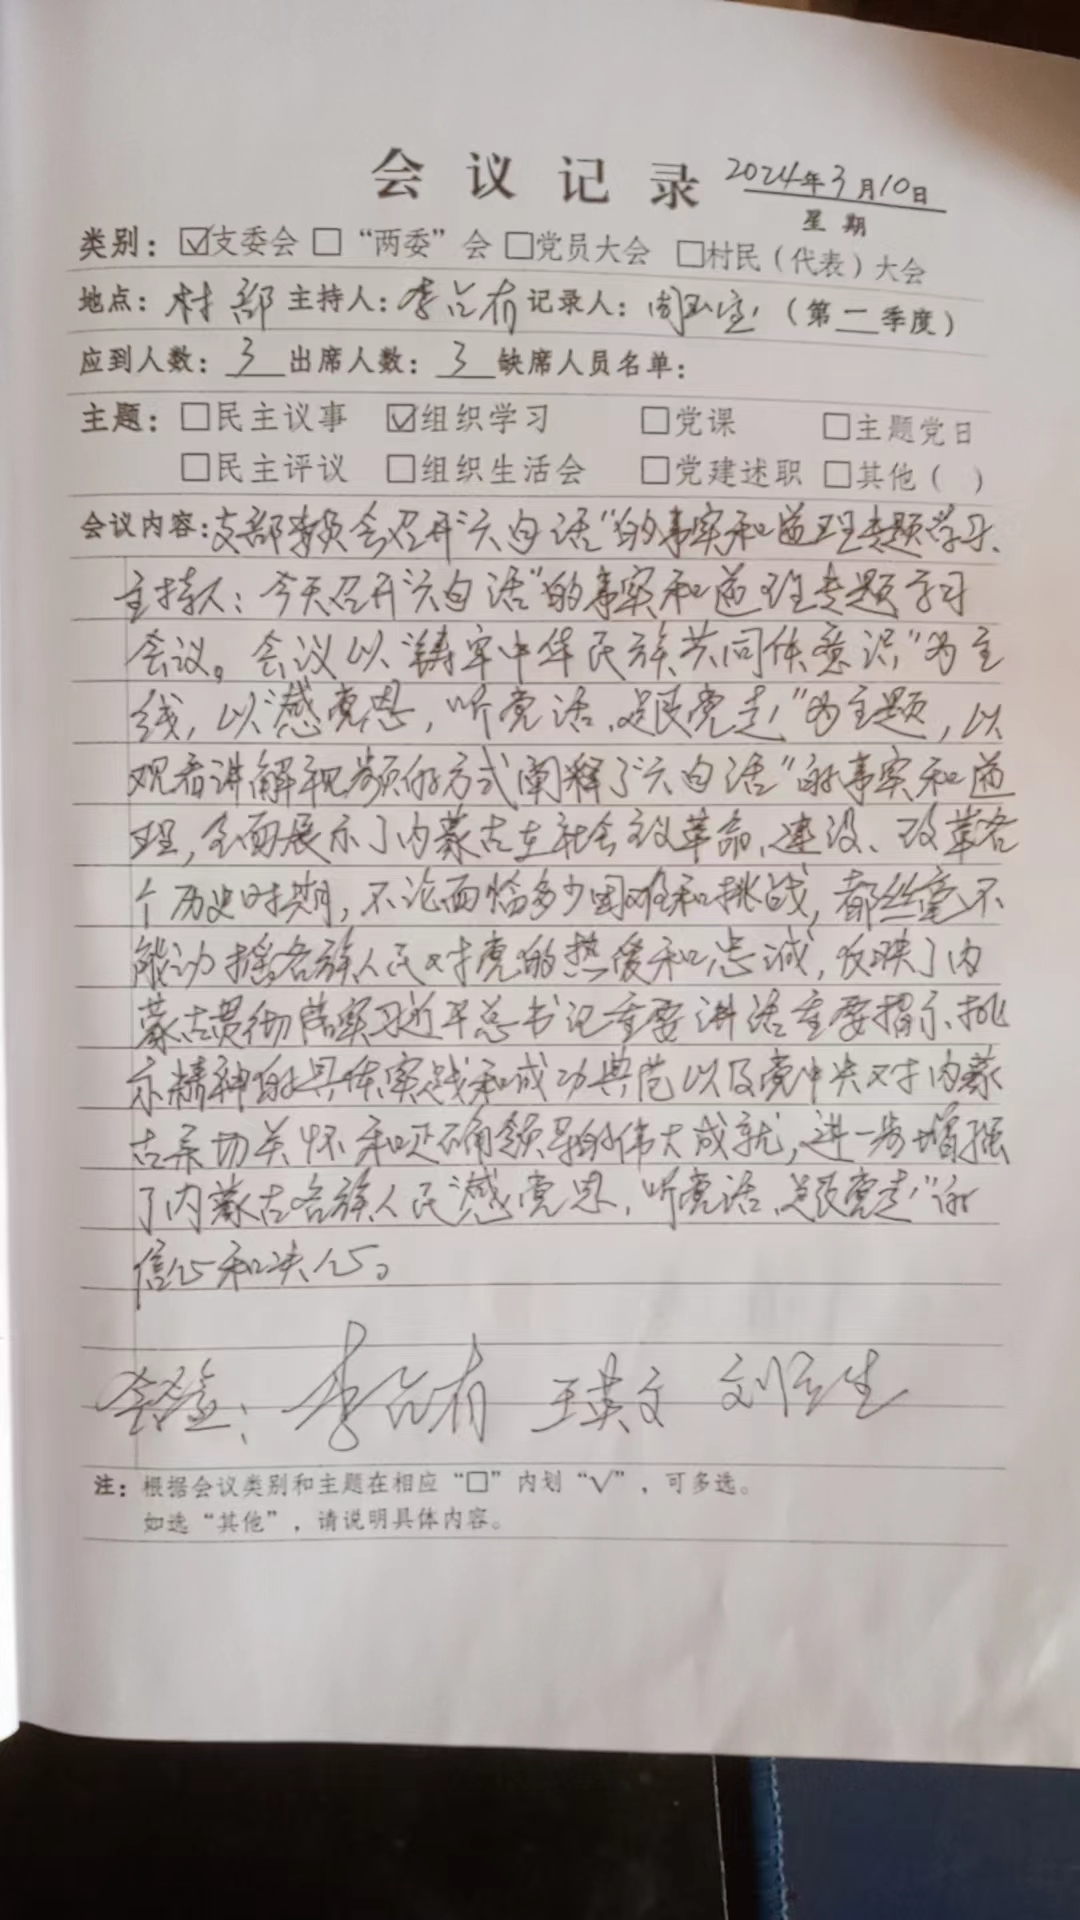 会议记录 2024年3月10日
星期
类别：☑支委会 □“两委”会 □党员大会 □村民（代表）大会
地点：村部 主持人：李占有 记录人：周玉宝（第一季度）
应到人数：3 出席人数：3 缺席人员名单：
主题：□民主议事 ☑组织学习 □党课 □主题党日
□民主评议 □组织生活会 □党建述职 □其他（ ）
会议内容：支部委员会召开“六句话”的事实和道理专题学习、
主持人：今天召开“六句话”的事实和道理专题学习
会议。会议以“铸牢中华民族共同体意识”为主
线，以“感党恩，听党话、跟党走”为主题，以
观看讲解视频的方式阐释了“六句话”的事实和道
理，全面展示了内蒙古在社会主义革命、建设、改革各
个历史时期，不论面临多少困难和挑战，都丝毫不
能动摇各族人民对党的热爱和忠诚，反映了内
蒙古贯彻落实习近平总书记重要讲话重要指示、批
示精神的具体实践和成功典范以及党中央对内蒙
古亲切关怀和正确领导的伟大成就，进一步增强
了内蒙古各族人民“感党恩，听党话、跟党走”的
信心和决心。
李占有 王英文 刘
注：根据会议类别和主题在相应“□”内划“√”，可多选。
如选“其他”，请说明具体内容。